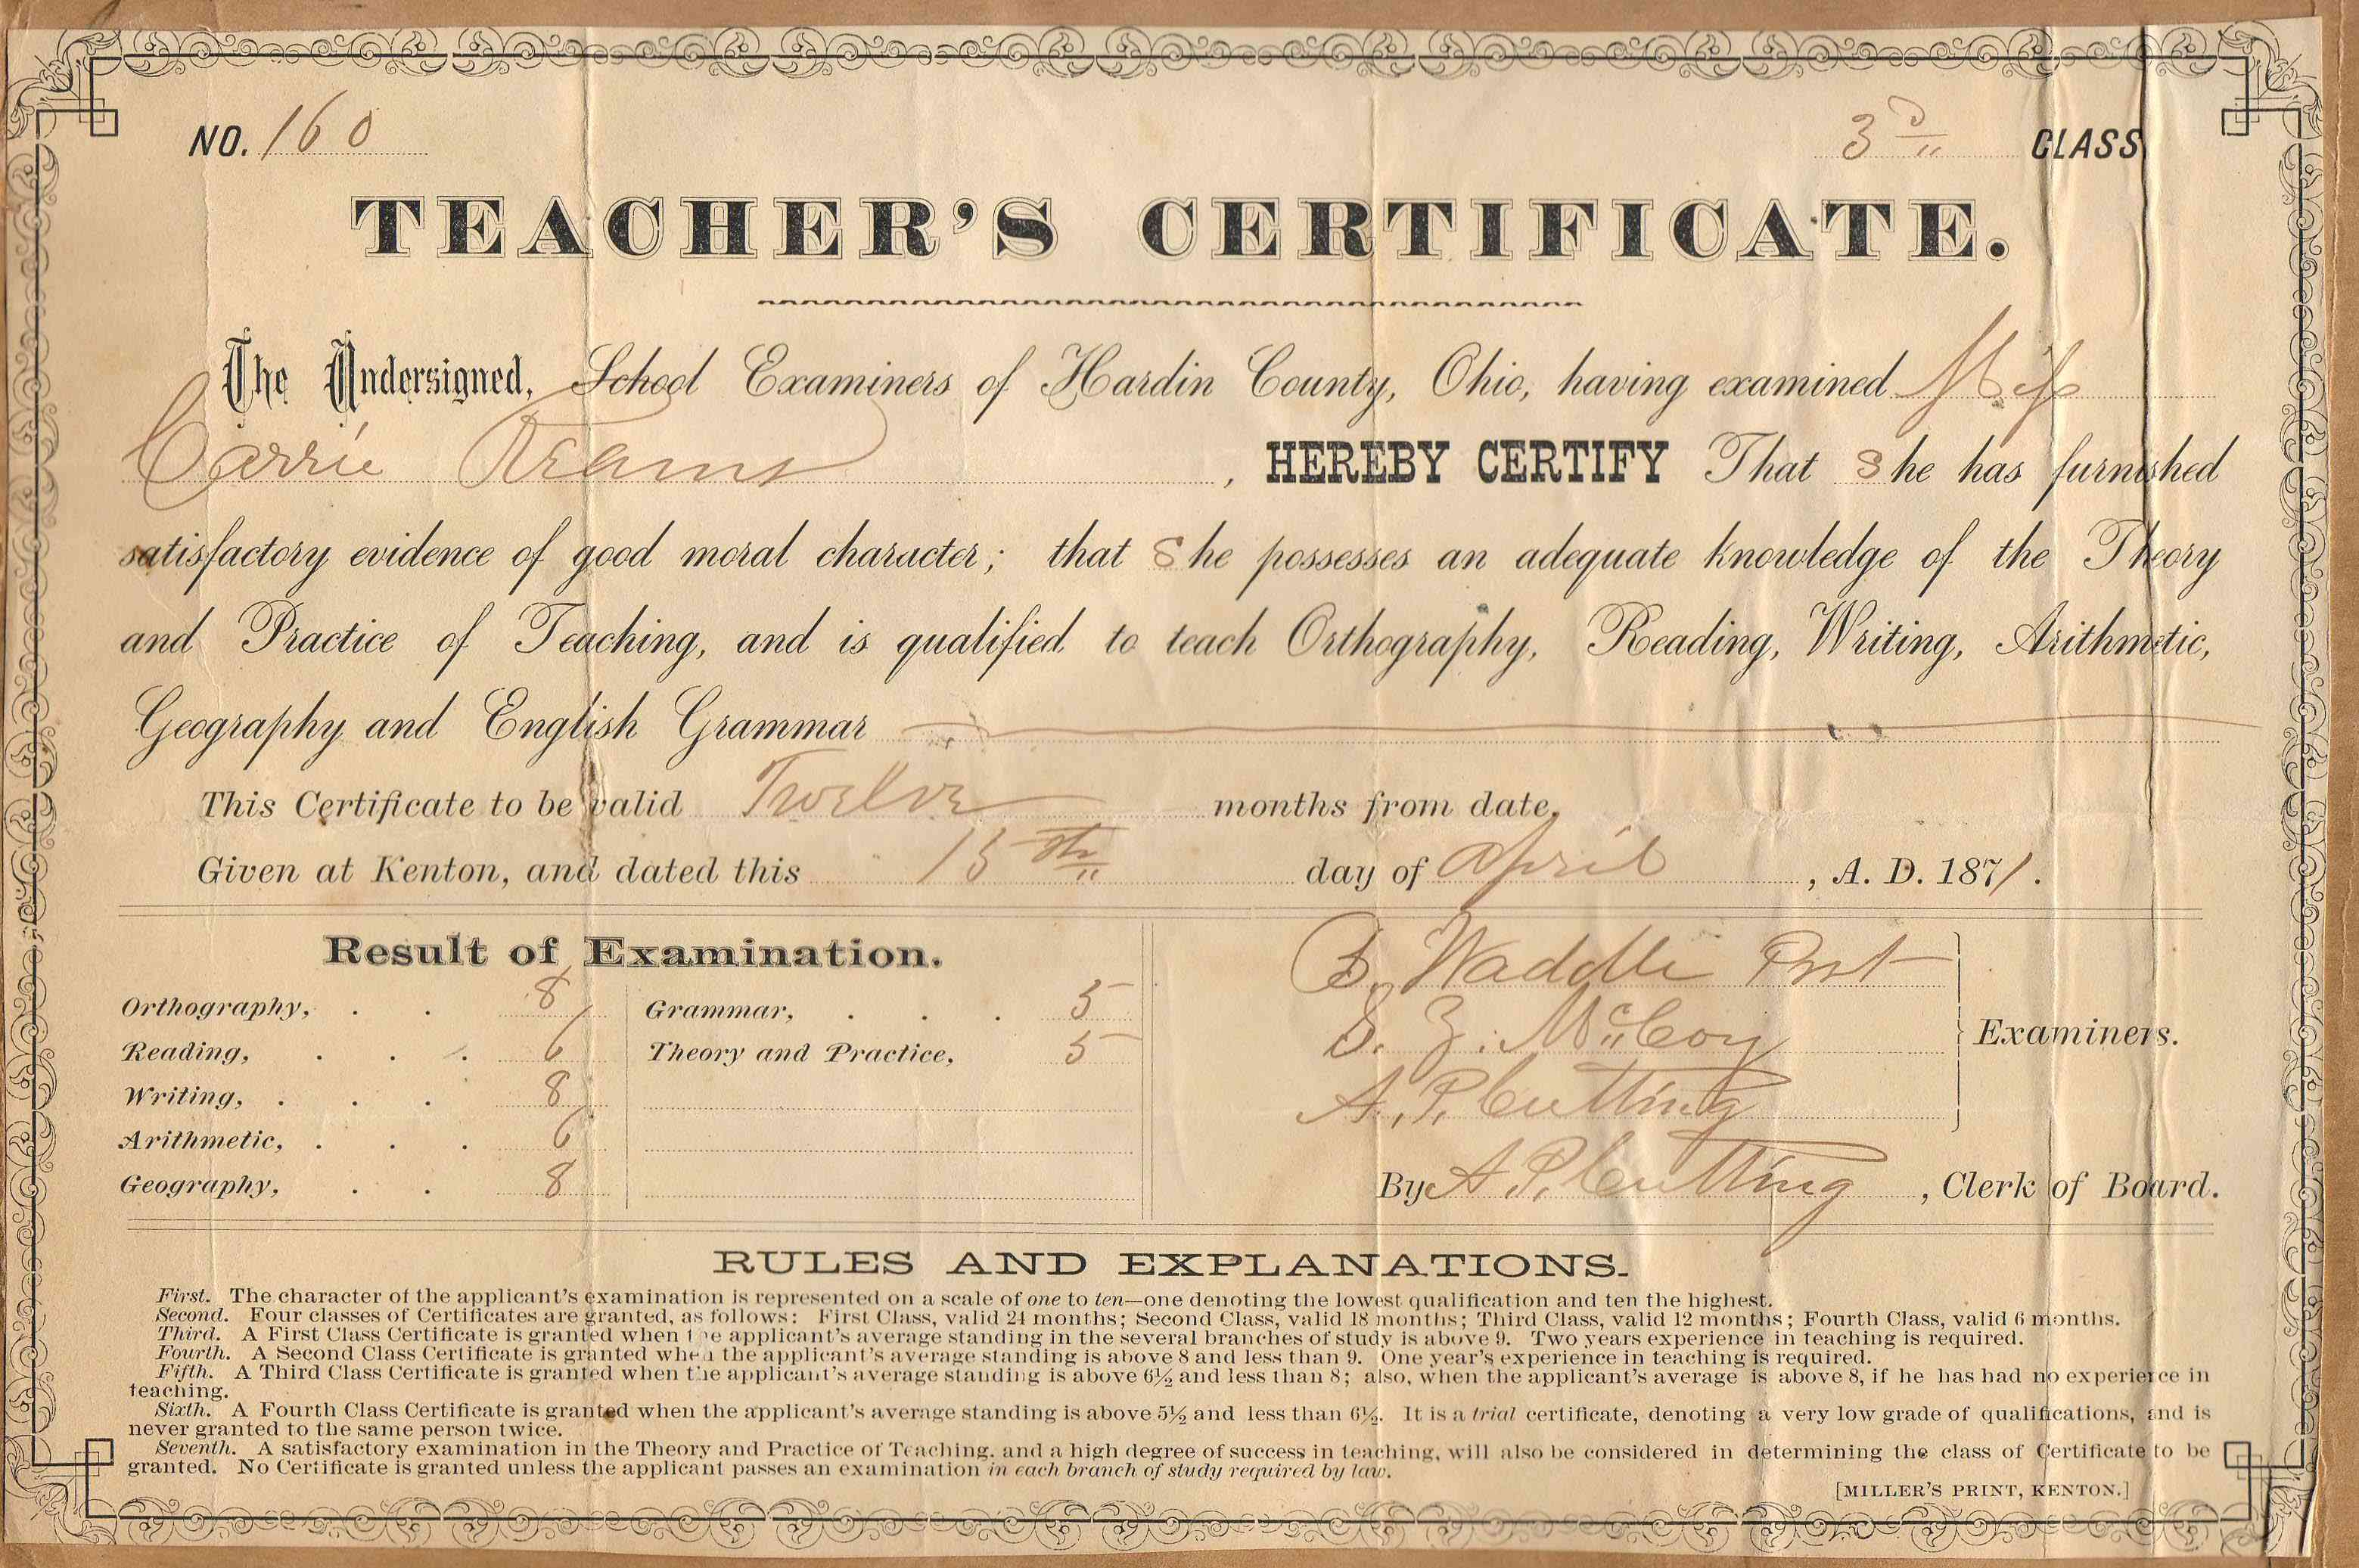 NO. 160 3D CLASS
TEACHER'S CERTIFICATE.
The Undersigned, School Examiners of Hardin County, Ohio, having examined Miss
Carrie Reams, HEREBY CERTIFY That She has furnished
satisfactory evidence of good moral character; that She possesses an adequate knowledge of the Theory
and Practice of Teaching, and is qualified to teach Orthography, Reading, Writing, Arithmetic,
Geography and English Grammar
This Certificate to be valid Twelve months from date.
Given at Kenton, and dated this 15th day of April, A. D. 1871.
Result of Examination.
Orthography, . . 8
Reading, . . . 6
Writing, . . . 8
Arithmetic, . . . 6
Geography, . . 8
Grammar, . . . 5
Theory and Practice, 5
B. Waddle Prst
S. Z. McCoy
A. P. Cutting
Examiners.
By A. P. Cutting, Clerk of Board.
RULES AND EXPLANATIONS.
First. The character of the applicant's examination is represented on a scale of one to ten—one denoting the lowest qualification and ten the highest.
Second. Four classes of Certificates are granted, as follows: First Class, valid 24 months; Second Class, valid 18 months; Third Class, valid 12 months; Fourth Class, valid 6 months.
Third. A First Class Certificate is granted when the applicant's average standing in the several branches of study is above 9. Two years experience in teaching is required.
Fourth. A Second Class Certificate is granted when the applicant's average standing is above 8 and less than 9. One year's experience in teaching is required.
Fifth. A Third Class Certificate is granted when the applicant's average standing is above 6½ and less than 8; also, when the applicant's average is above 8, if he has had no experience in
teaching.
Sixth. A Fourth Class Certificate is granted when the applicant's average standing is above 5½ and less than 6½. It is a trial certificate, denoting a very low grade of qualifications, and is
never granted to the same person twice.
Seventh. A satisfactory examination in the Theory and Practice of Teaching, and a high degree of success in teaching, will also be considered in determining the class of Certificate to be
granted. No Certificate is granted unless the applicant passes an examination in each branch of study required by law.
[MILLER'S PRINT, KENTON.]